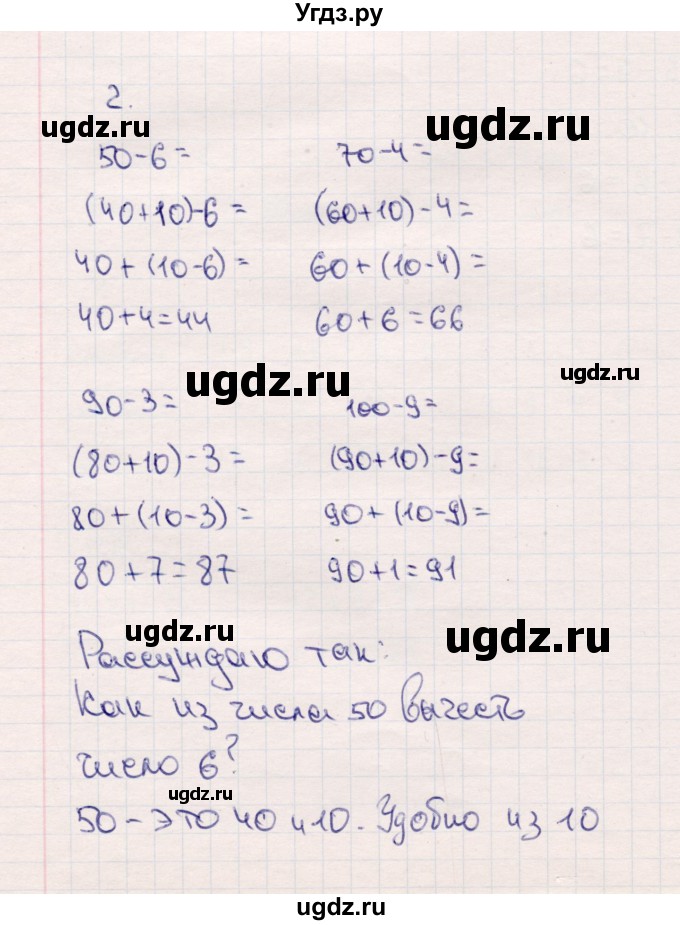 Угдз.ру
2.
ugdz.ru
ugdz.ru
50-6= 70-4=
(40+10)-6= (60+10)-4=
40+(10-6)= 60+(10-4)=
40+4=44 60+6=66
ugdz.ru
90-3= 100-9=
(80+10)-3= (90+10)-9=
80+(10-3)= 90+(10-9)=
80+7=87 90+1=91
ugdz.ru
ugdz.ru
Рассуждаю так:
Как из числа 50 вычесть
число 6?
ugdz.ru
50-это 40 и 10. Удобно из 10
ugdz.ru